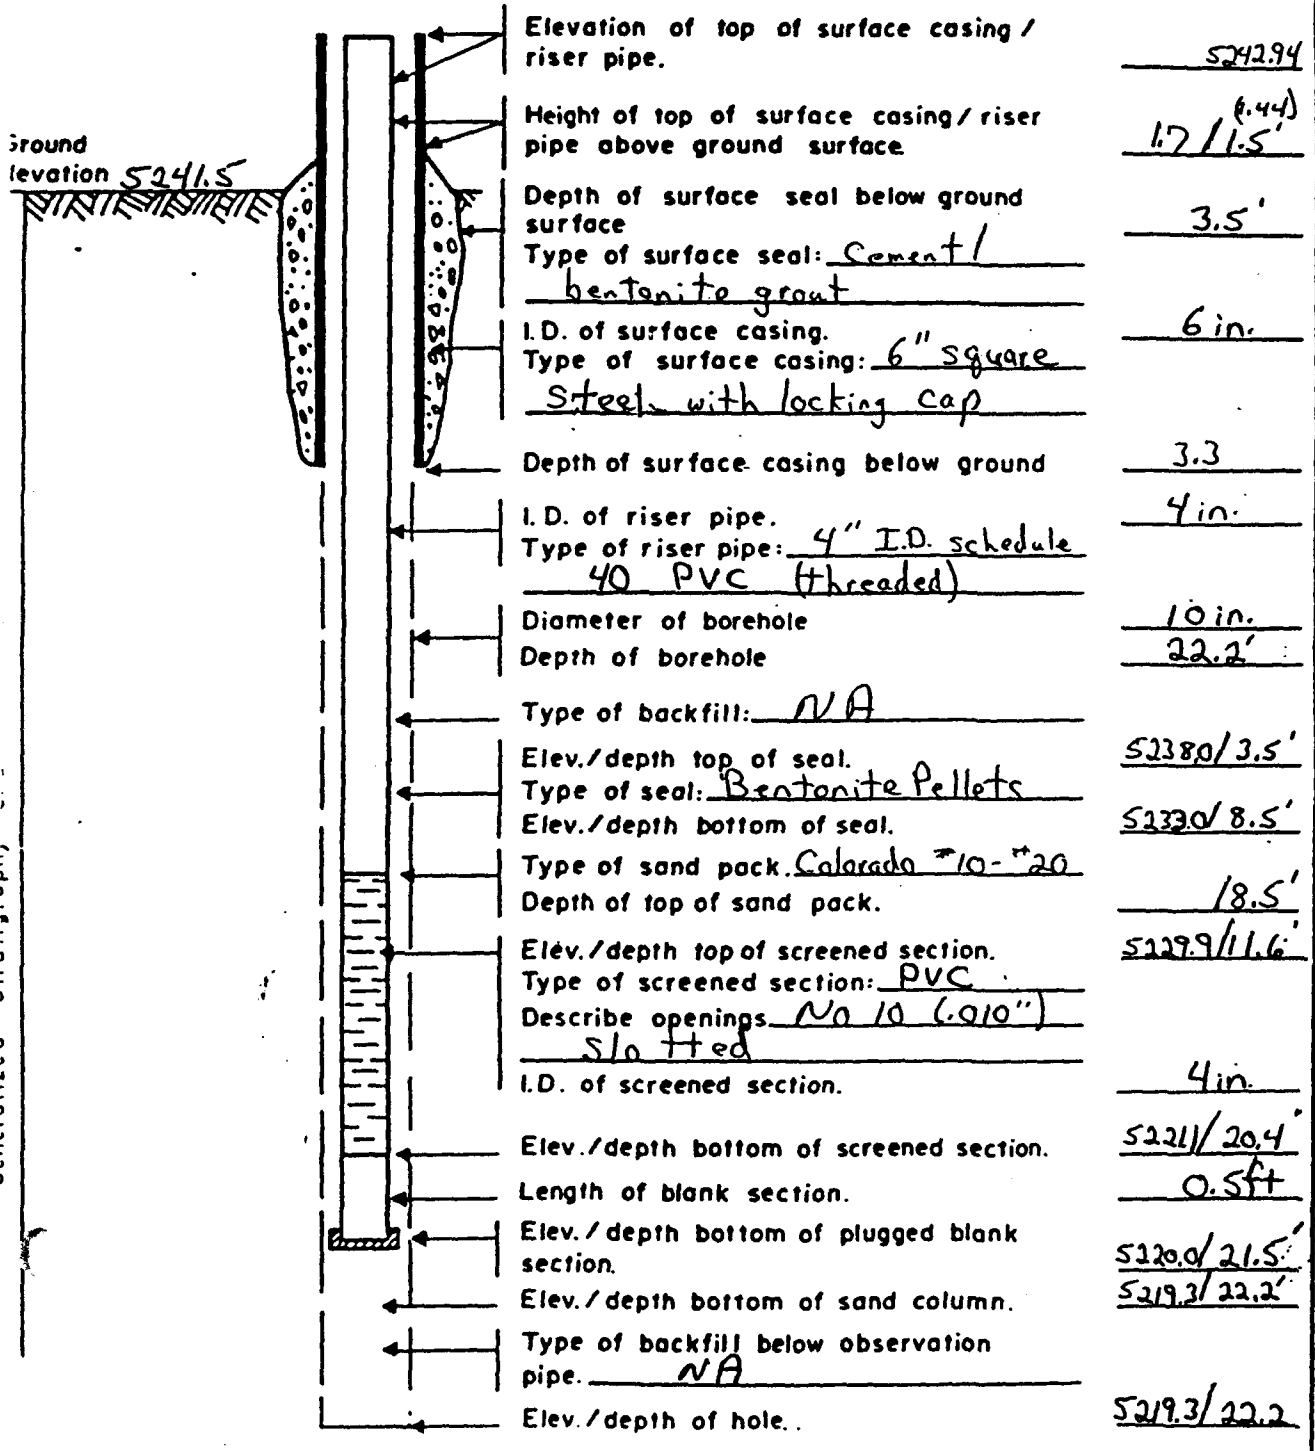 Elevation of top of surface casing /
riser pipe. 5242.94
Height of top of surface casing / riser (1.44)
pipe above ground surface 1.7 / 1.5'
Ground
Elevation 5241.5
Depth of surface seal below ground
surface 3.5'
Type of surface seal: Cement /
bentonite grout
I.D. of surface casing. 6 in.
Type of surface casing: 6" square
Steel with locking cap
Depth of surface casing below ground 3.3
I.D. of riser pipe. 4 in.
Type of riser pipe: 4" I.D. schedule
40 PVC (threaded)
Diameter of borehole 10 in.
Depth of borehole 22.2'
Type of backfill: NA
Elev./depth top of seal. 5238.0/ 3.5'
Type of seal: Bentonite Pellets
Elev./depth bottom of seal. 5233.0/ 8.5'
Type of sand pack. Colorado #10-#20
Depth of top of sand pack. /8.5'
Elev./depth top of screened section. 5229.9/11.6'
Type of screened section: PVC
Describe openings No 10 (.010")
Slotted
I.D. of screened section. 4 in.
Elev./depth bottom of screened section. 5221.1/ 20.4'
Length of blank section. 0.5ft
Elev./depth bottom of plugged blank
section. 5220.0/ 21.5'
Elev./depth bottom of sand column. 5219.3/ 22.2'
Type of backfill below observation
pipe. NA
Elev./depth of hole. 5219.3/ 22.2